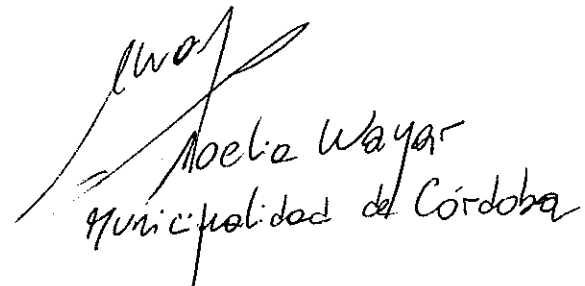 Noelia Wayar
Municipalidad de Córdoba